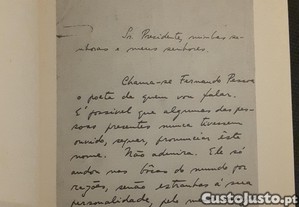 Sr. Presidente, minhas se-
nhoras e meus senhores.
Chama-se Fernando Pessoa
o poeta de quem vou falar.
É possível que algumas das pes-
soas presentes nunca tivessem
ouvido, sequer, pronunciar êste
nome. Não admira. Êle só
andou nas bôcas do mundo por
razões, senão estranhas à sua
personalidade, pelo
CustoJusto.pt